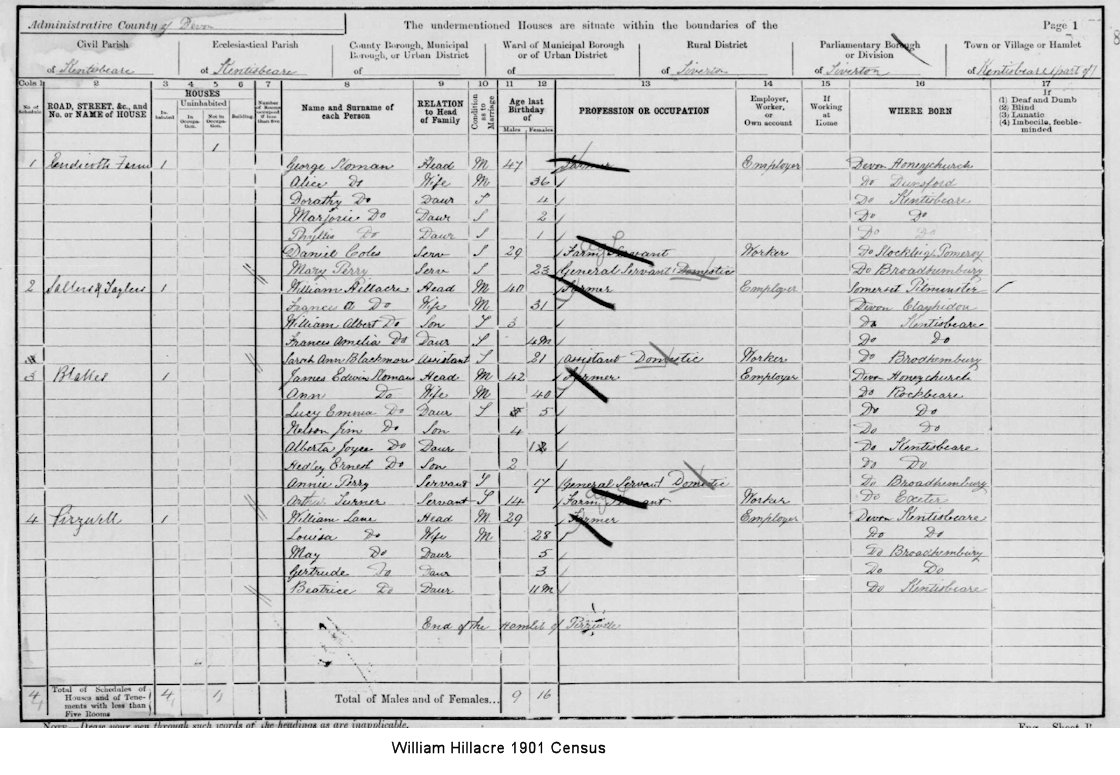 Administrative County of Devon The undermentioned Houses are situate within the boundaries of the Page 1
Civil Parish Ecclesiastical Parish County Borough, Municipal Borough, or Urban District Ward of Municipal Borough or of Urban District Rural District Parliamentary Borough or Division Town or Village or Hamlet
of Kentisbeare of Kentisbeare of of of Tiverton of Tiverton of Kentisbeare (part of)
Cols. 1 2 3 4 5 6 7 8 9 10 11 12 13 14 15 16 17
No. of Schedule ROAD, STREET, &c., and No. or NAME of HOUSE HOUSES Inhabited Uninhabited In Occupation. Not in Occupation. Building Number of Rooms occupied if less than five Name and Surname of each Person RELATION to Head of Family Condition as to Marriage Age last Birthday of Males Females PROFESSION OR OCCUPATION Employer, Worker, or Own account If Working at Home WHERE BORN If (1) Deaf and Dumb (2) Blind (3) Lunatic (4) Imbecile, feeble-minded
1
1 Farm 1 George Noman Head M 47 Farmer Employer Devon Honeychurch
Alice Do Wife M 36 Do Dunsford
Dorathy Do Daur S 4 Do Kentisbeare
Marjorie Do Daur S 2 Do Do
Phyllis Do Daur S 1 Do Do
Daniel Coles Serv S 29 Farm Servant Worker Do Stockleigh Pomeroy
Mary Perry Serv S 23 General Servant Domestic Do Broadhembury
2 Sallers & Taylers 1 William Hillacre Head M 40 Farmer Employer Somerset Pitminster
Frances A Do Wife M 31 Devon Clayhidon
William Albert Do Son S 3 Do Kentisbeare
Francis Amelia Do Daur S 4M Do Do
Sarah Ann Blackmore Assistant S 21 Assistant Domestic Worker Do Brodhembury
3 Blakes 1 James Edwin Noman Head M 42 Farmer Employer Devon Honeychurch
Ann Do Wife M 40 Do Rockbeare
Lucy Emma Do Daur S 5 Do Do
Nelson Jim Do Son 4 Do Do
Alberta Joyce Do Daur Do Kentisbeare
Hedley Ernest Do Son 2 Do Do
Annie Perry Servant S 17 General Servant Domestic Do Broadhembury
Arthur Turner Servant S 14 Farm Servant Worker Do Exeter
4 Pirzwell 1 William Lane Head M 29 Farmer Employer Devon Kentisbeare
Louisa Do Wife M 28 Do Do
May Do Daur 5 Do Broadhembury
Gertrude Do Daur 3 Do Do
Beatrice Do Daur 11M Do Kentisbeare
End of the Hamlet of
4 Total of Schedules of Houses and of Tenements with less than Five Rooms 4 1 Total of Males and of Females... 9 16
NOTE—Draw your pen through such words of the headings as are inapplicable.
William Hillacre 1901 Census